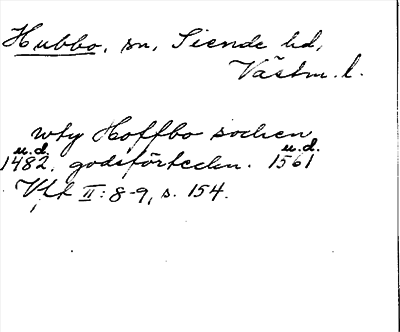 Hubbo, sn, Siende hd,
Västm. l.
wty Hoffbo sochen
u.d. u.d.
1482, godsförteckn. 1561
Vft II: 8-9, s. 154.